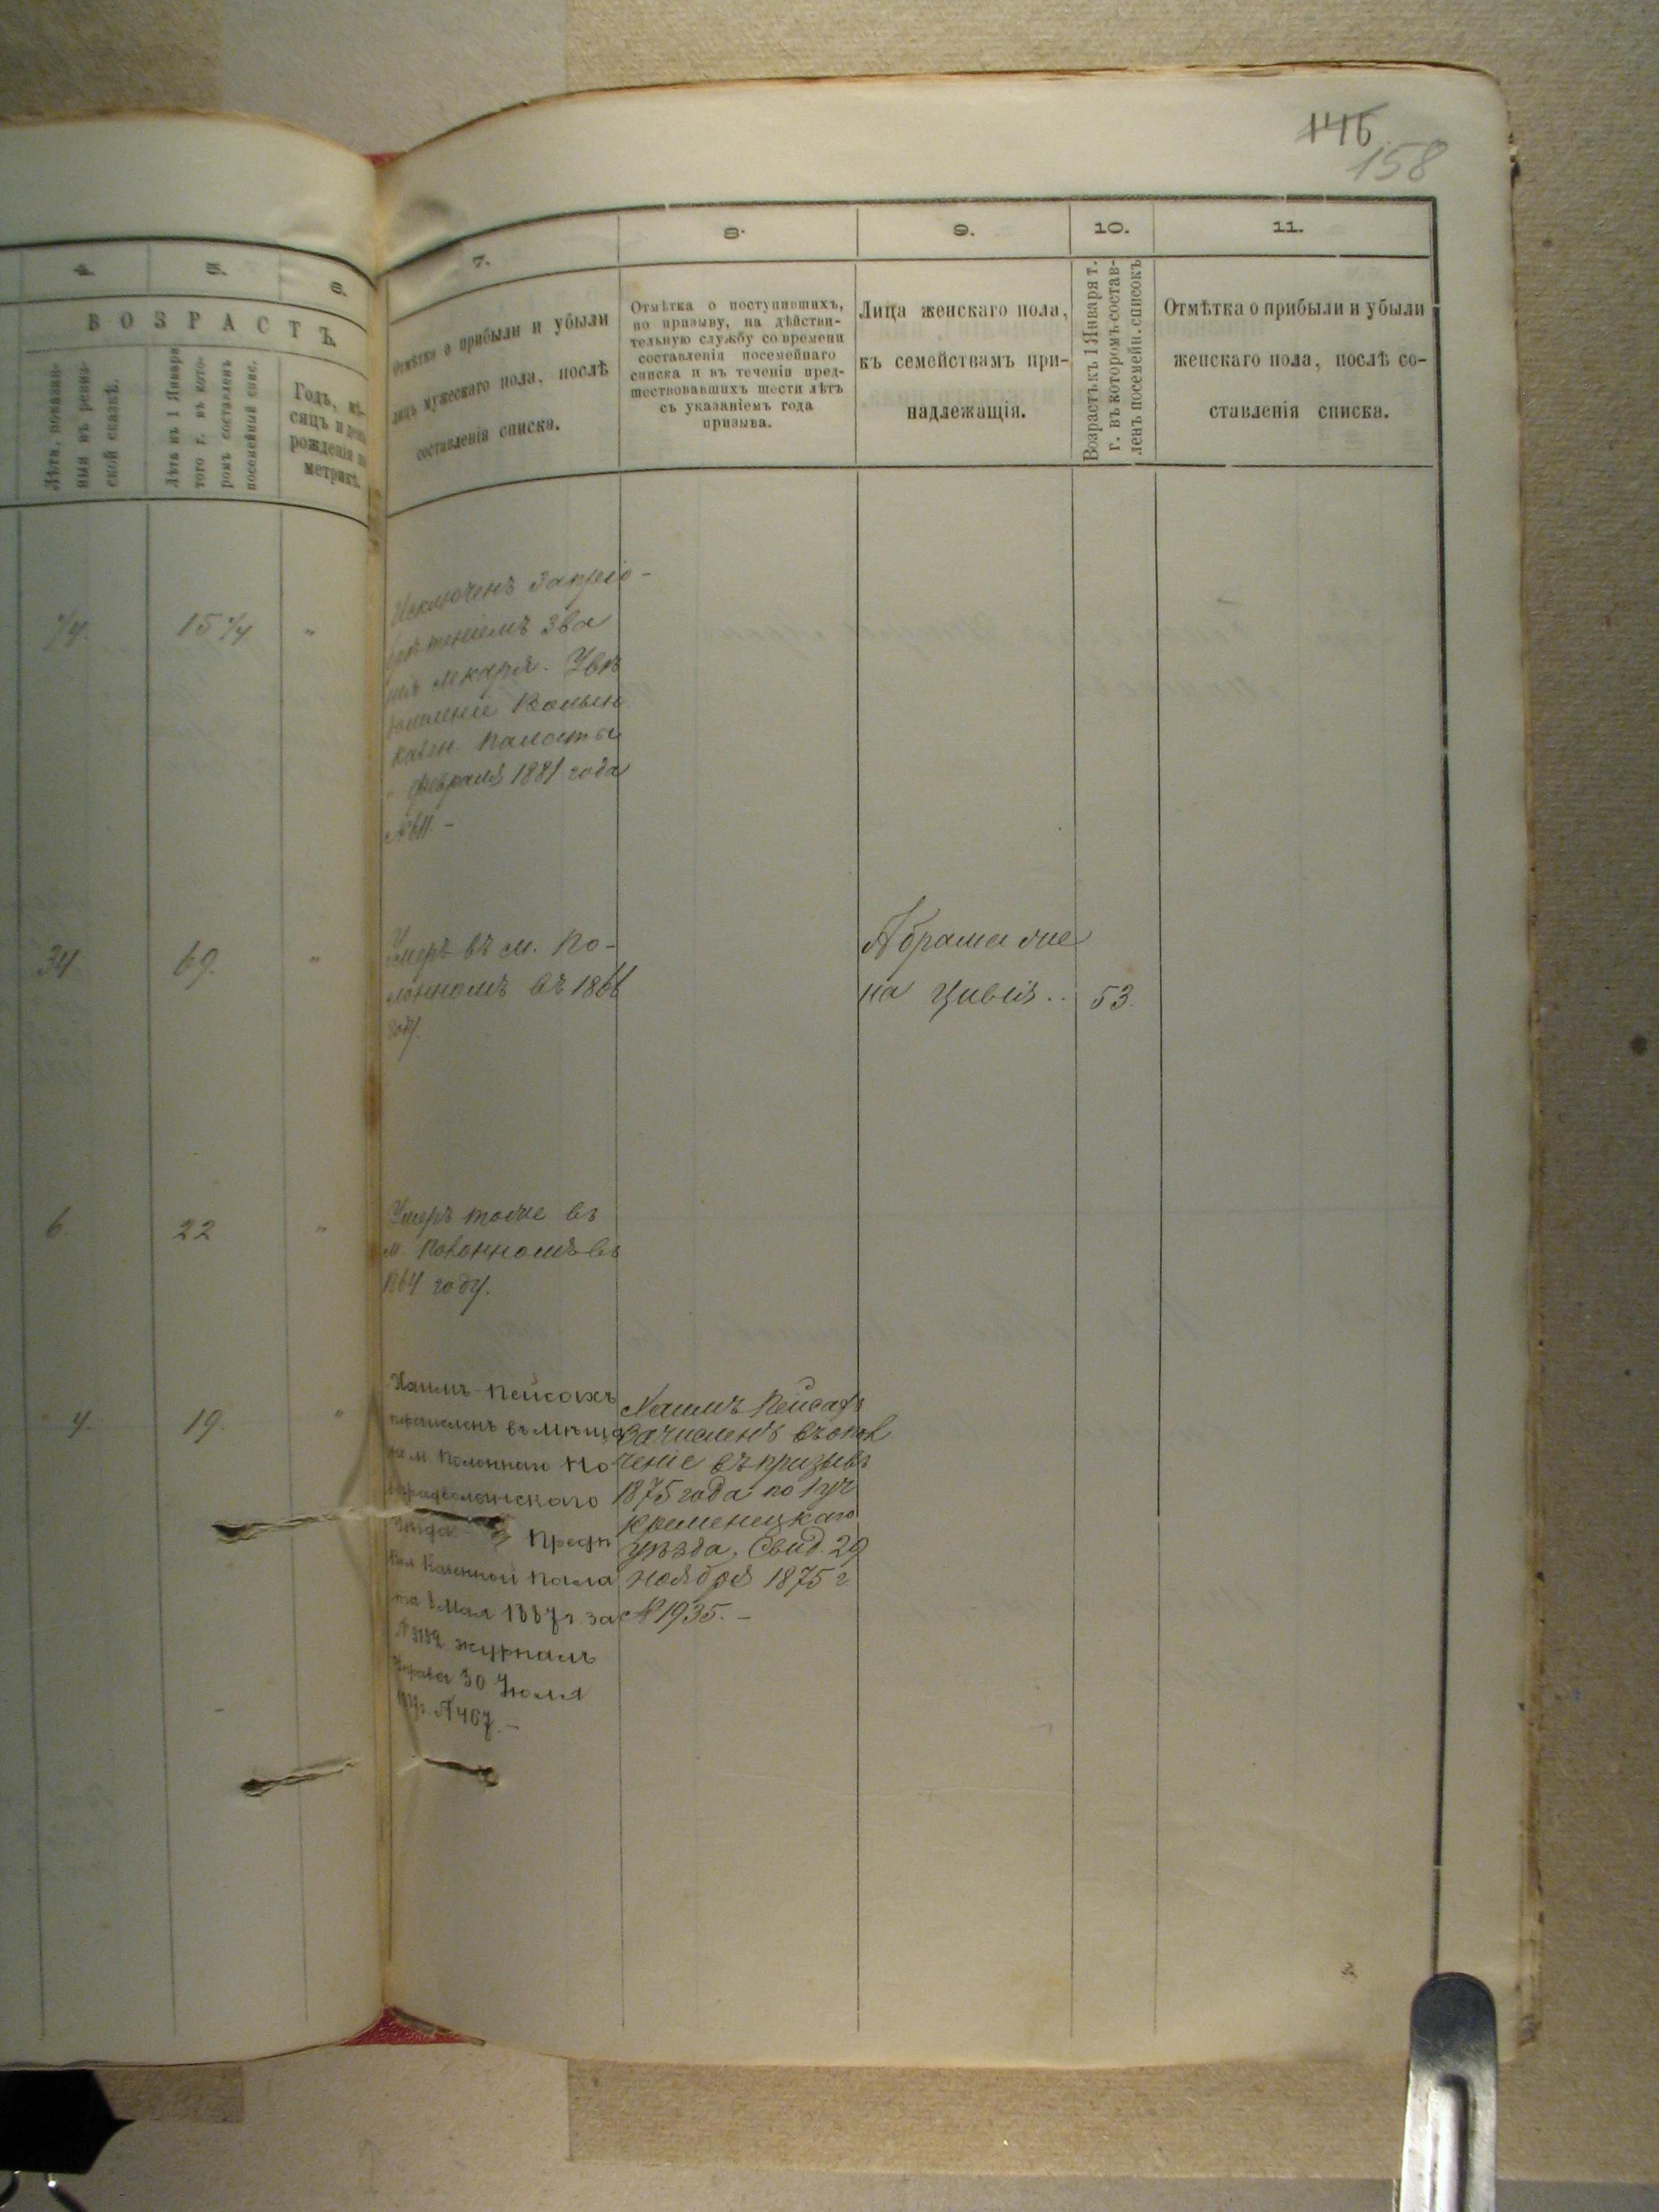 146.
158
4.
5.
6.
ВОЗРАСТЪ.
Лѣта, показан-
ныя въ ревиз-
ской сказкѣ.
Лѣта къ 1 Января
того г. въ кото-
ромъ составленъ
посемейный спис.
Годъ, мѣ-
сяцъ и день
рожденія по
метрикѣ.
7.
Отмѣтка о прибыли и убыли
лицъ мужескаго пола, послѣ
составленія списка.
8.
Отмѣтка о поступившихъ,
по призыву, на дѣйстви-
тельную службу со времени
составленія посемейнаго
списка и въ теченіи пред-
шествовавшихъ шести лѣтъ
съ указаніемъ года
призыва.
9.
Лица женскаго пола,
къ семействамъ при-
надлежащія.
10.
Возрастъ къ 1 Января т.
г. въ которомъ состав-
ленъ посемейн. списокъ
11.
Отмѣтка о прибыли и убыли
женскаго пола, послѣ со-
ставленія списка.
15 1/4
"
Исключенъ запріо-
брѣтеніемъ зва
нія лекаря. Увѣ
домленіе Волын.
казен. Палаты
Февраля 1881 года
34.
69.
"
Умеръ въ м. По-
лонномъ въ 1866
году.
Абрама же
на Цивія .. 53.
6.
22
"
Умеръ тоже въ
м. Полонномъ въ
1864 году.
4.
19.
"
Хаимъ-Пейсахъ
въ мѣща
не м. Полоннаго Но
воградволынскаго
уѣзда. Предп
Вол. Казенной пала
ты 8 Мая 1887 г за
журналъ
Управы 30 Іюля
№ 467. –
Хаимъ Пейсахъ
зачисленъ въ опол
ченіе въ призывъ
1875 года по 1 уч
Кременецкаго
уѣзда, Свид. 29
ноября 1875 г.
№ 1935. –